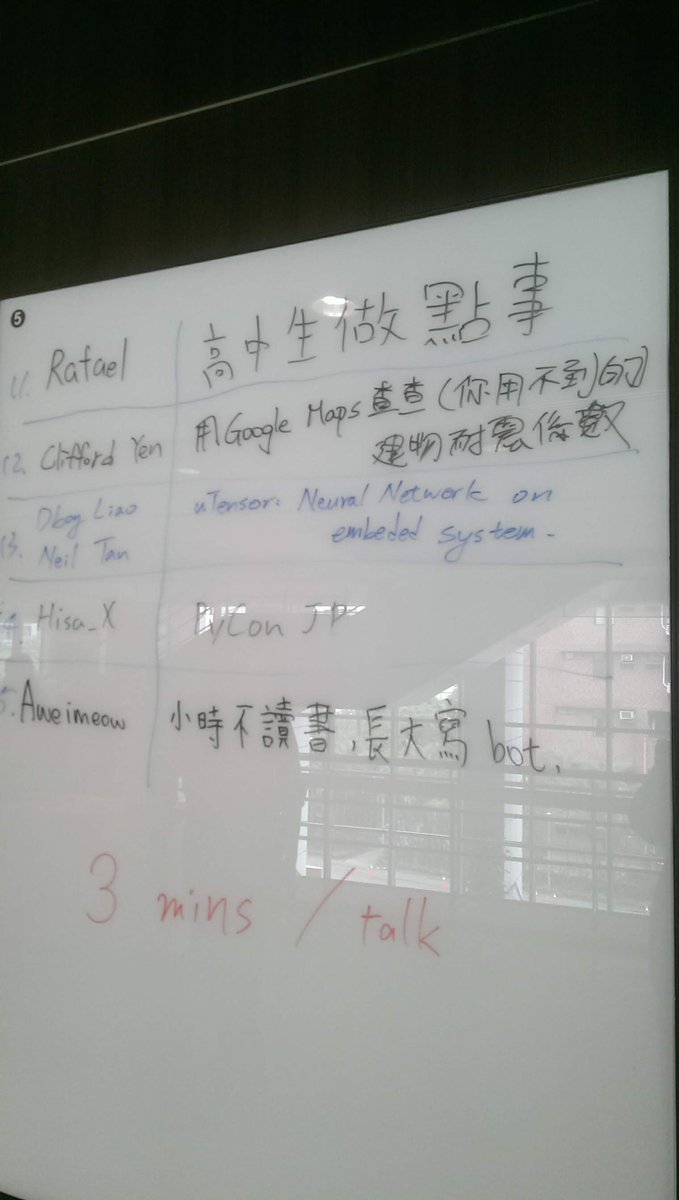 5
11. Rafael 高中生做點事
12. Clifford Yen 用Google Maps 查查(你用不到)的
建物耐震係數
Dboy Liao uTensor: Neural Network on
13. Neil Tan embeded system.
4. Hisa_X PyCon JP
5. Aweimeow 小時不讀書,長大寫 bot.
3 mins / talk